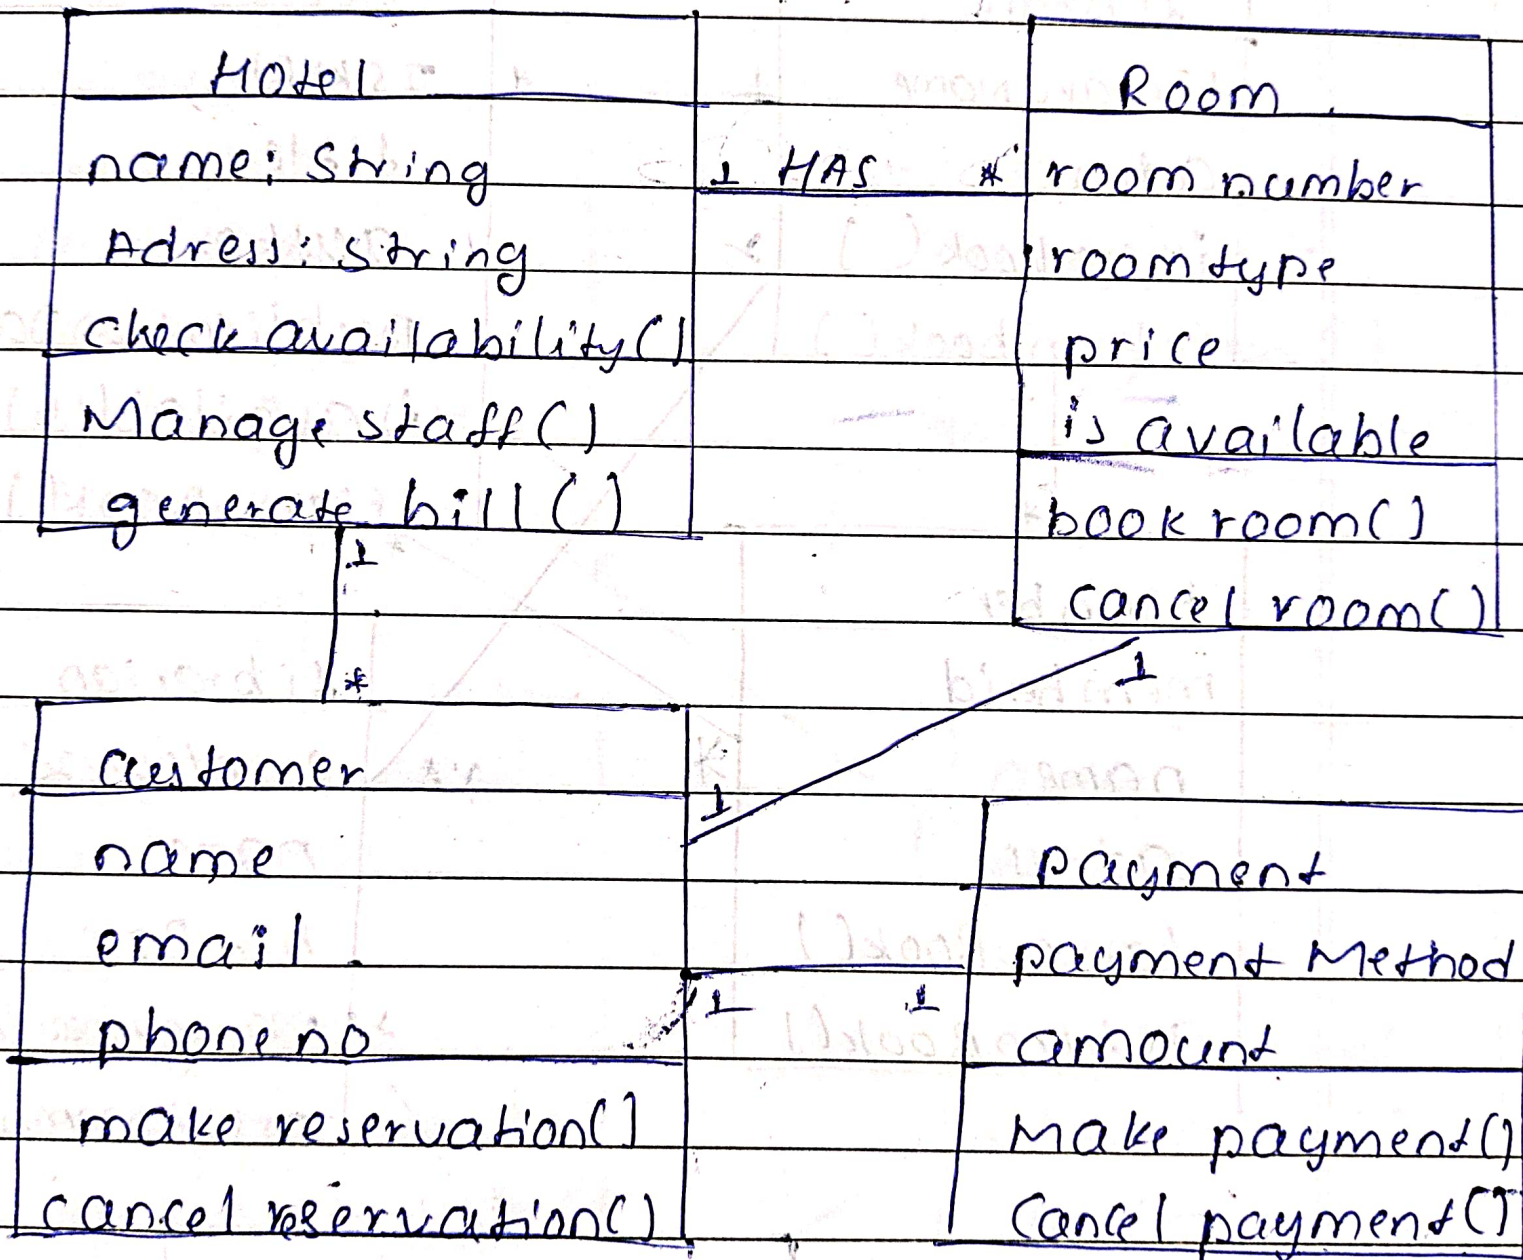 Hotel
name: String
Adress: String
check availability()
Manage staff()
generate bill()
1 HAS *
Room
room number
room type
price
is available
book room()
cancel room()
1
*
1
1
customer
name
email
phone no
make reservation()
cancel reservation()
1 1
payment
payment Method
amount
Make payment()
Cancel payment()